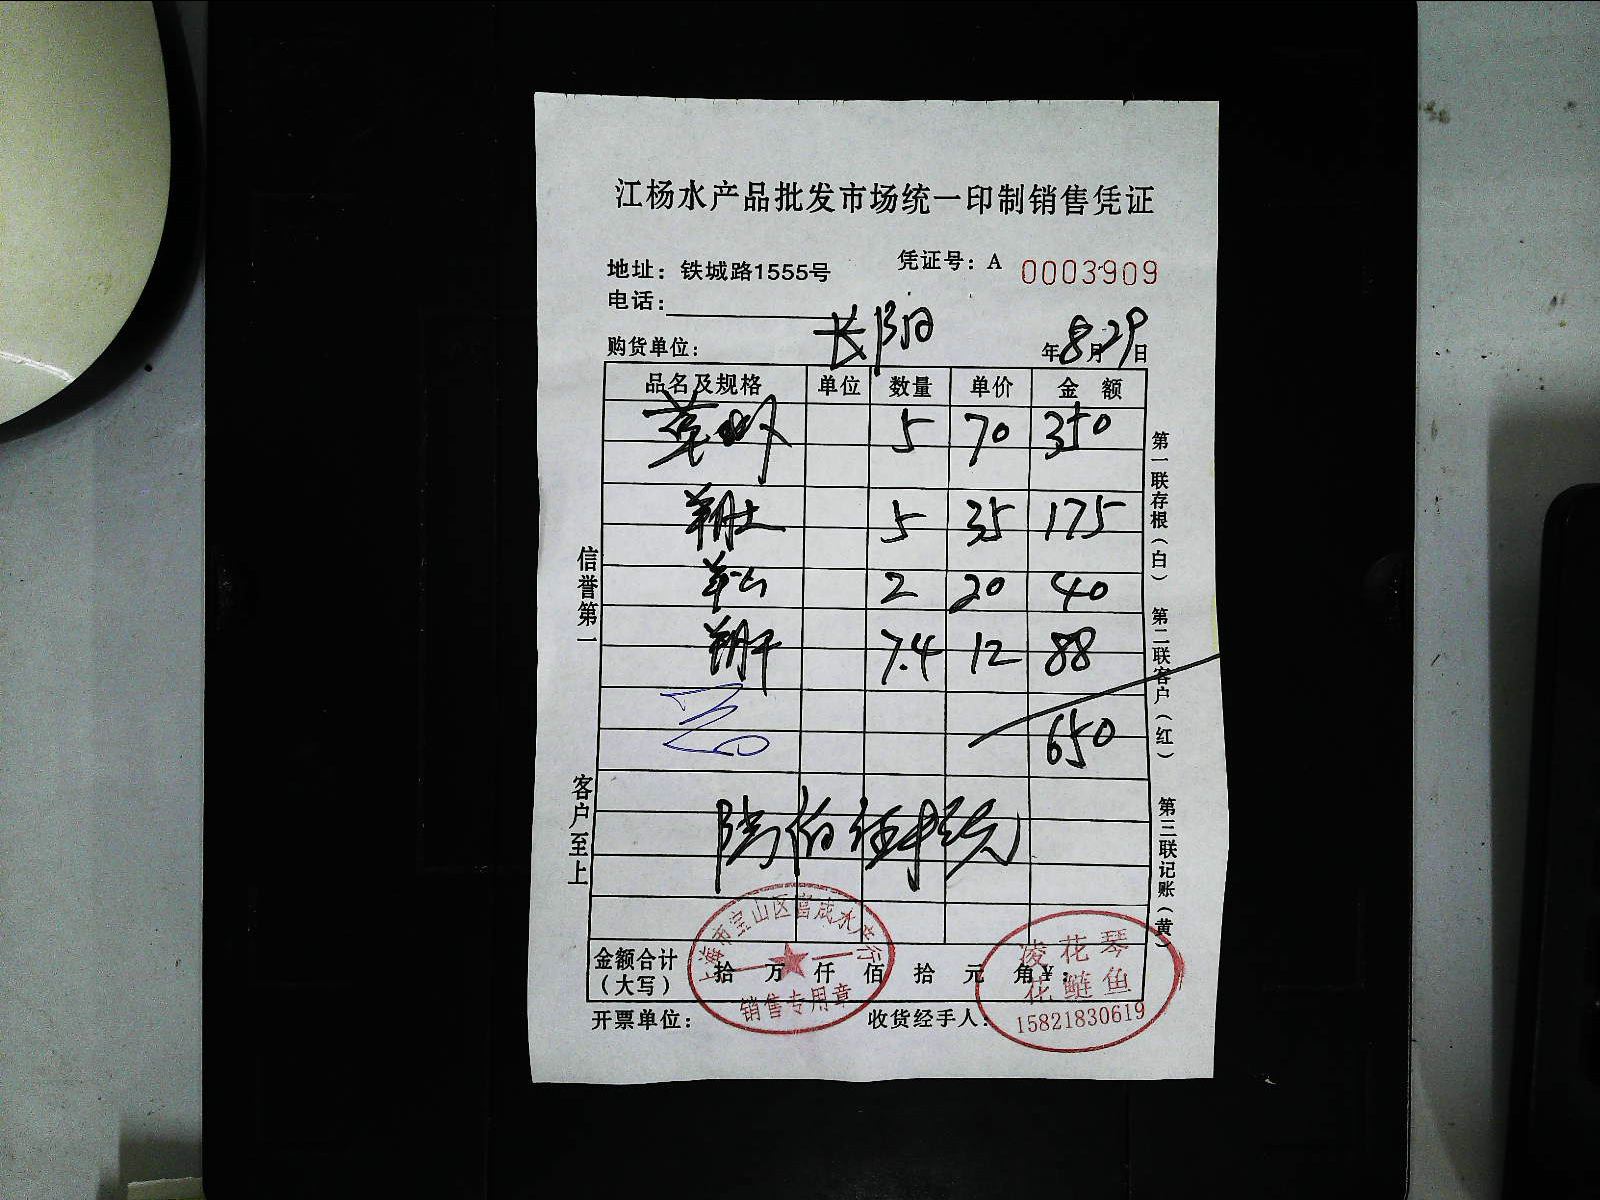 江杨水产品批发市场统一印制销售凭证
地址：铁城路1555号 凭证号：A 0003909
电话：
购货单位： 长阳 年8月29日
品名及规格 单位 数量 单价 金额
5 70 350
5 35 175
2 20 40
7.4 12 88
650
陆佰伍拾元
金额合计（大写） 拾 万 仟 佰 拾 元 角 ¥：
开票单位： 收货经手人：
信誉第一
客户至上
第一联存根（白）
第二联客户（红）
第三联记账（黄）
上海市宝山区富成水产行
销售专用章
凌花琴
花鲢鱼
15821830619